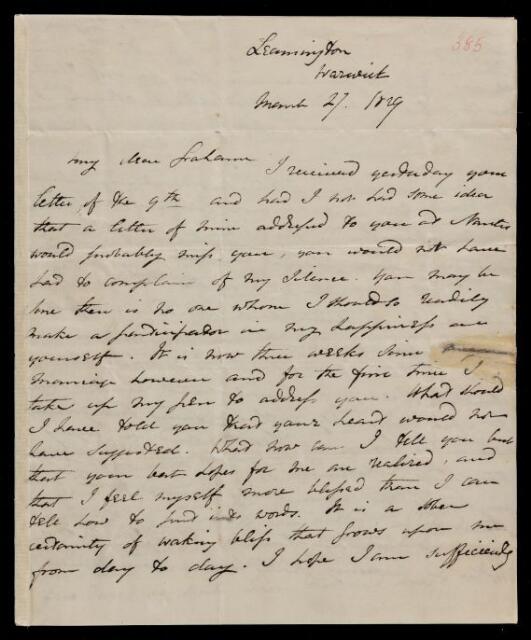 385
Leamington
Warwick
March 27. 1829
My Dear Grahame I received yesterday your
letter of the 9th and had I not had some idea
that a letter of mine addressed to you at Nantes
would probably miss you, you would not have
had to complain of my silence. You may be
sure there is no one whom I should so readily
make a participator in my happiness as
yourself. It is now three weeks since
marriage however and for the first time I
take up my pen to address you. What should
I have told you that your heart would not
have suggested. What now can I tell you but
that your best hopes for me are realized, and
that I feel myself more blessed than I can
tell how to find words. It is a sober
certainty of waking bliss that grows upon me
from day to day. I hope I am sufficiently